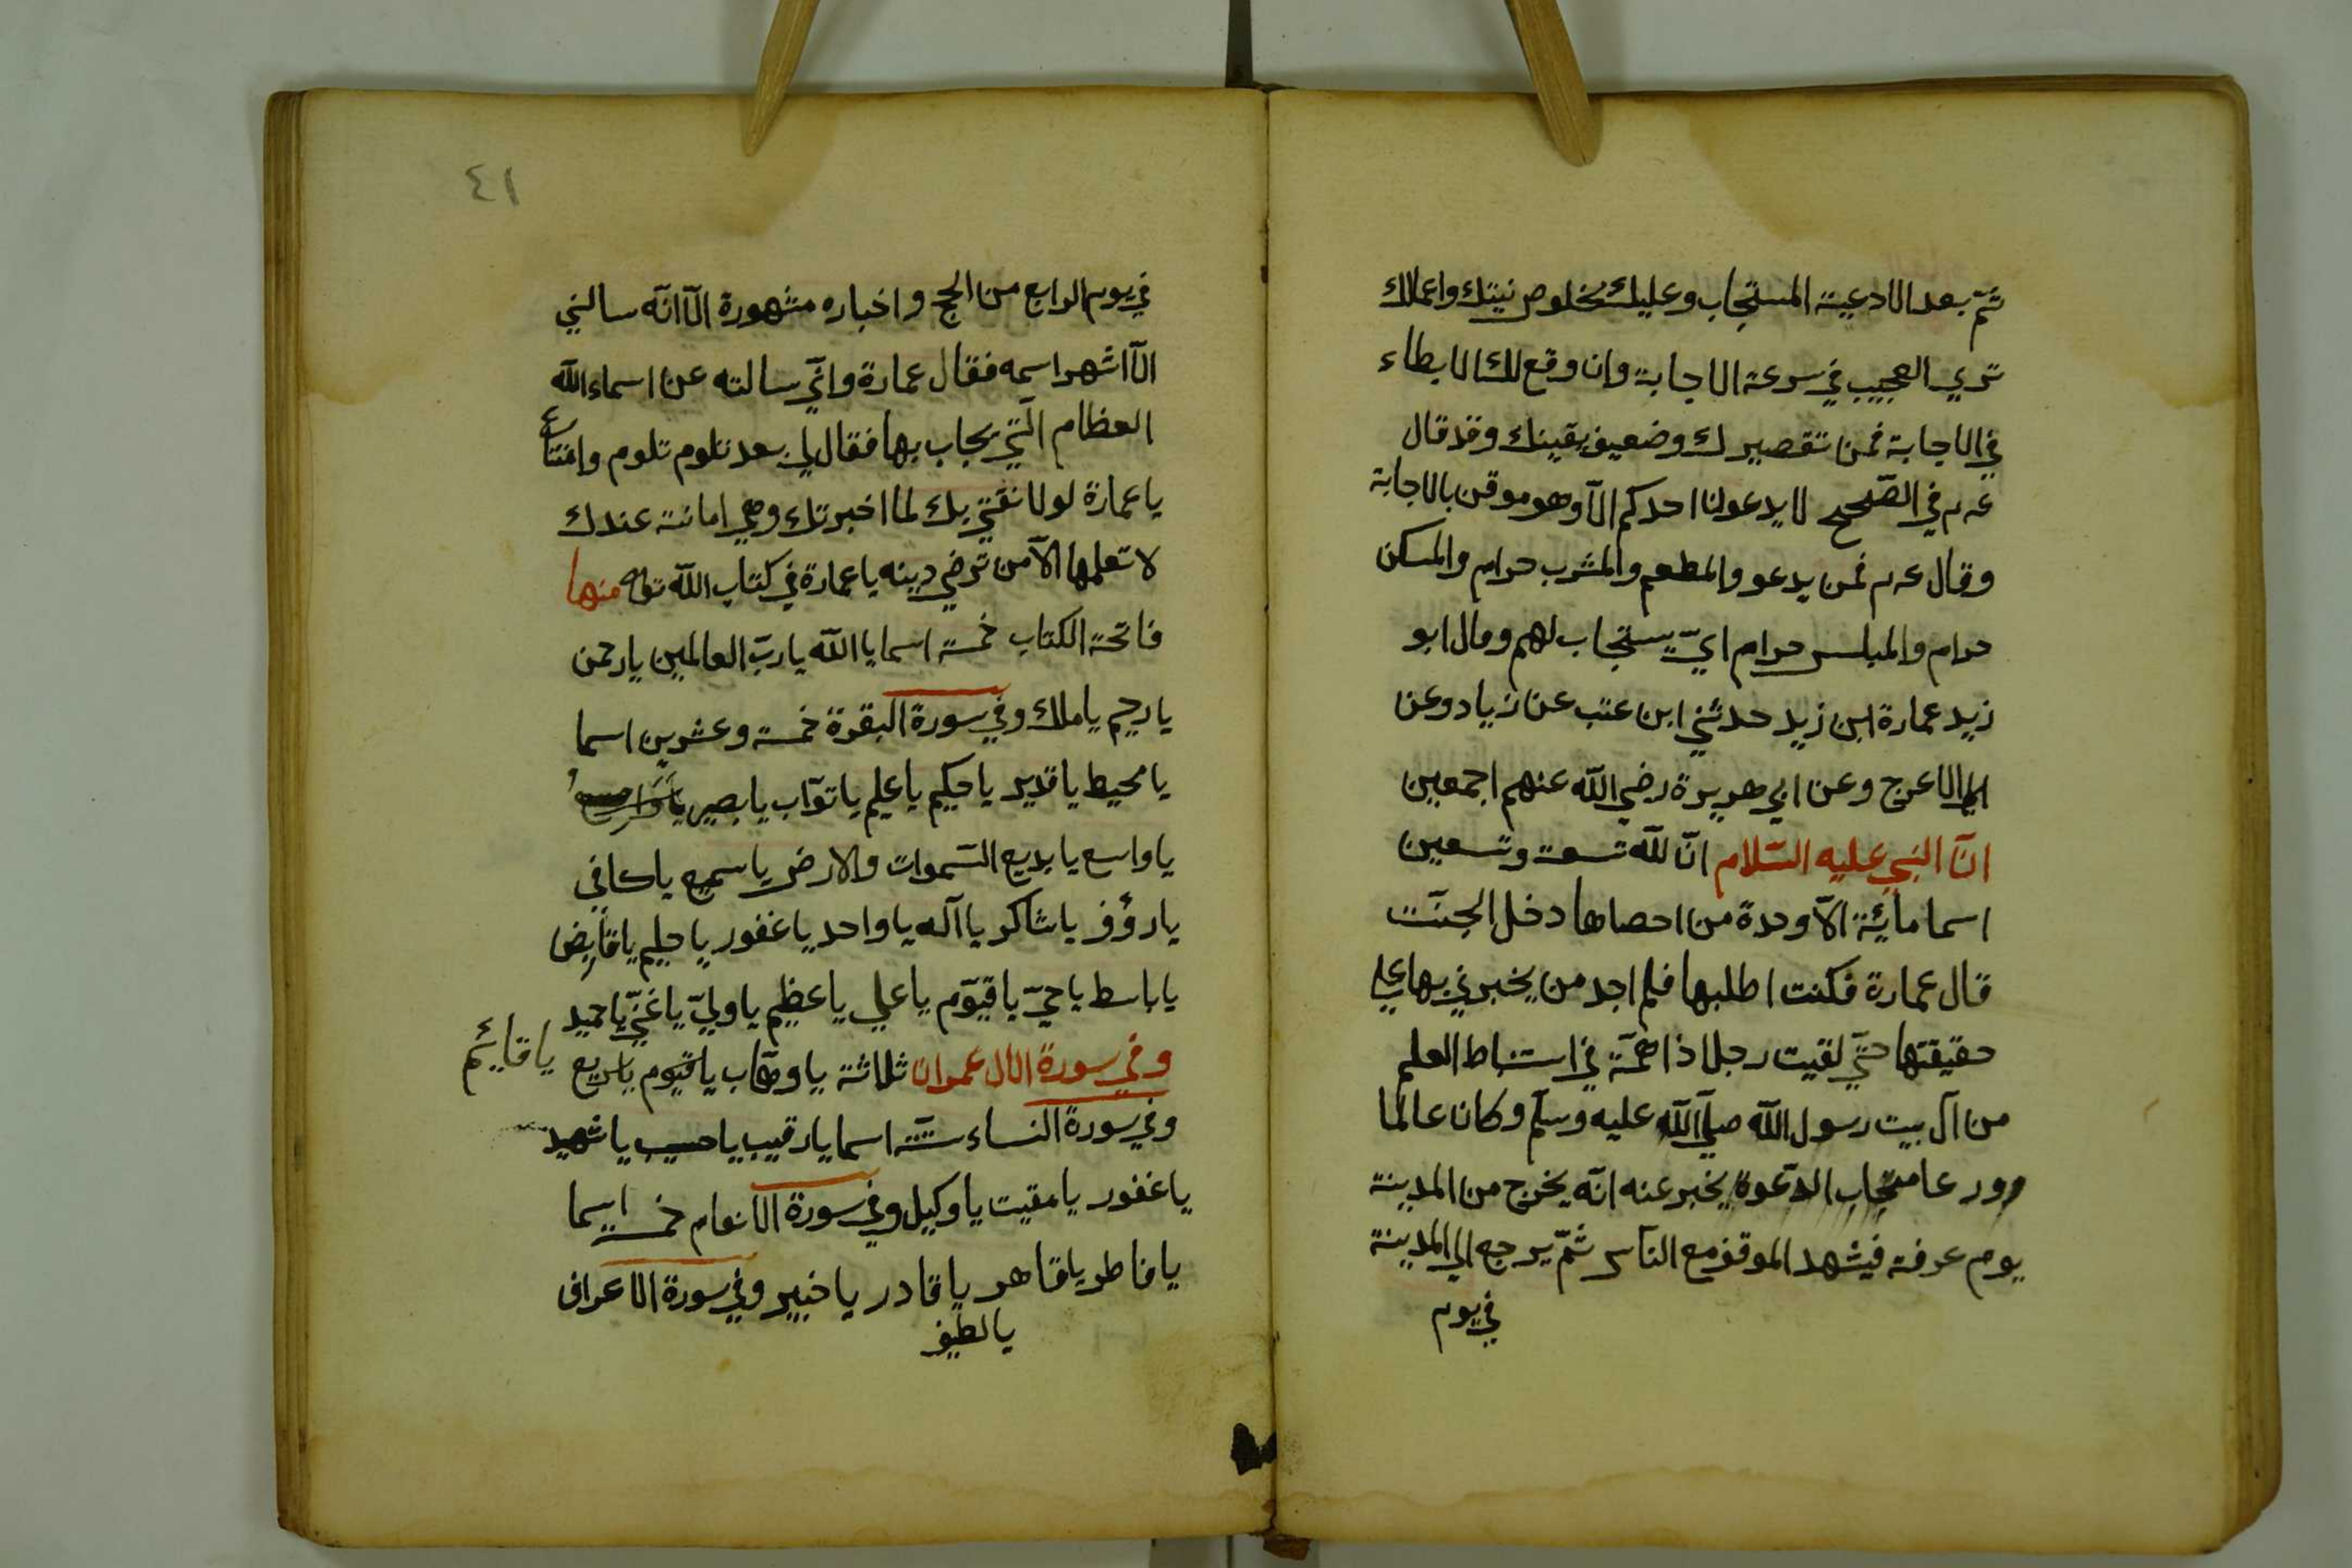 ثمّ بعد الادعية المستجاب وعليك بخلوص نيتك واعمالك
تري العجيب في سرعة الاجابة وان وقع لك الابطاء
في الاجابة فمن تقصيرك وضعيف يقينك وقد قال
عم في الصّحيح لا يدعونا احدكم الّا وهو موقن بالاجابة
وقال عم فمن يدعو والمطعم والمشرب حرام والمسكن
حرام والملبس حرام ايّ يستجاب لهم وقال ابو
زيد عمارة ابن زيد حدثني ابن عتب عن زياد وعن
الاعرج وعن ابي هريرة رضي الله عنهم اجمعين
انّ النبي عليه السّلام انّ لله تسعة وتسعين
اسما مائة الّا وحدة من احصاها دخل الجنّت
قال عمارة فكنت اطلبها فلم اجد من يخبرني بها علي
حقيقتها حتّي لقيت رجلا ذا همّة في استنباط العلم
من آل بيت رسول الله صلّي الله عليه وسلّم وكان عالما
وورعا متجاب الدّعوة يخبر عنه انّه يخرج من المدينة
يوم عرفة فيشهد الموقف مع النّاس ثمّ يرجع الي المدينة
في يوم
٤١
في يوم الرابع من الحج واخباره مشهورة الّا انّه سالني
الّا اشهر اسمه فقال عمارة وانّي سالته عن اسماء الله
العظام الّتي يجاب بها فقال لي بعد تلوم تلوم وامتناع
يا عمارة لولا ثقتي بك لما اخبرتك وهي امانة عندك
لا تعلمها الّا من ترضي دينه يا عمارة في كتاب الله تعا منها
فاتحة الكتاب خمسة اسما يا الله يا ربّ العالمين يا رحمن
يا رحيم يا ملك وفي سورة البقرة خمسة وعشرين اسما
يا محيط يا قدير يا حكيم يا عليم يا توّاب يا بصير
يا واسع يا بديع السّموات والارض يا سميع يا كافي
يا رؤف يا شاكر يا آله يا واحد يا غفور يا حليم يا قابض
يا باسط يا حيّ يا قيوّم يا علي يا عظيم يا وليّ يا غنيّ يا حميد
وفي سورة الال عمران ثلاثة يا وهّاب يا قيوم يا سريع يا قائم
وفي سورة النساء ستّة اسما يا رقيب يا حسيب يا شهيد
يا غفور يا مقيت يا وكيل وفي سورة الانعام خمسة اسما
يا فاطر يا قاهر يا قادر يا خبير وفي سورة الاعراف
يا لطيف